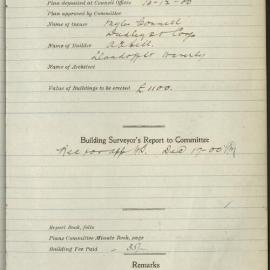 Plan deposited at Council Offices 18-12-00
Plan approved by Committee
Name of Owner Myles Connell
Dudley St Coogee
Name of Builder A. E. Hill
Llandaff St Waverley
Name of Architect
Value of Buildings to be erected £1100.
Building Surveyor's Report to Committee
Rec for app Dec 19-00
Report Book, folio
Plans Committee Minute Book, page
Building Fee Paid 35/-
Remarks